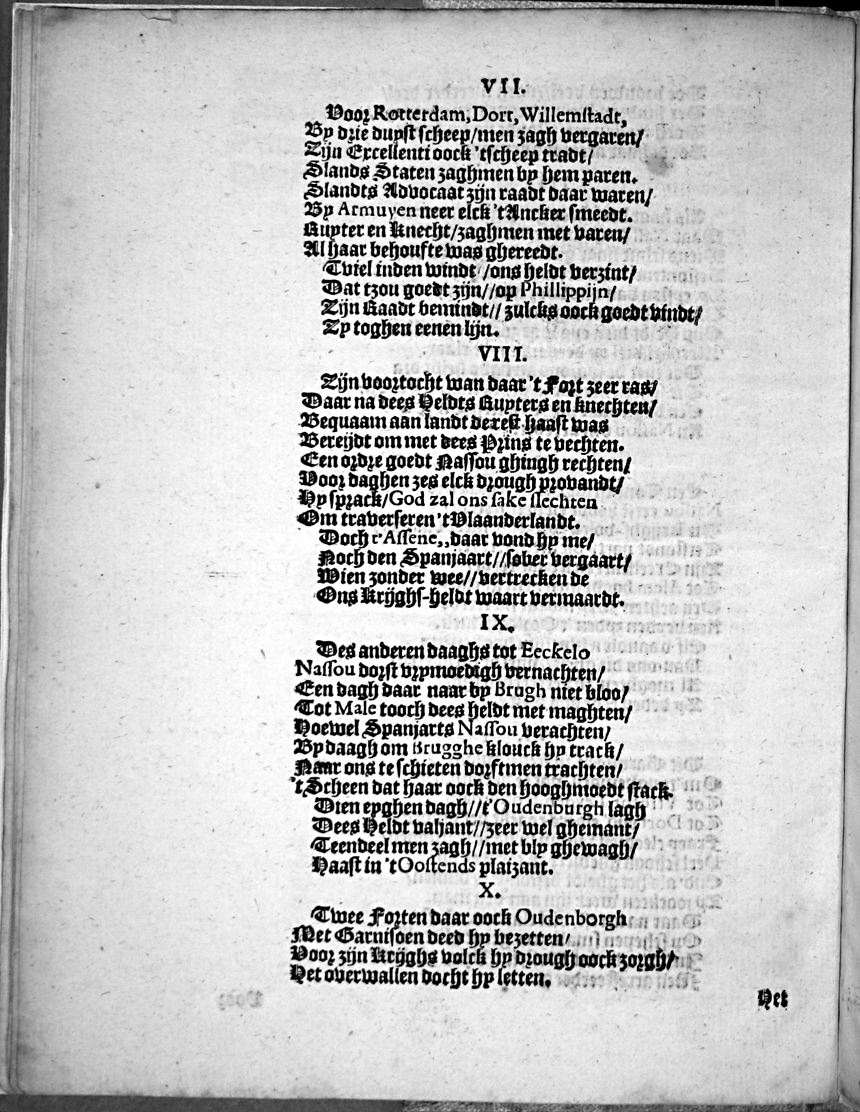 VII.
Voor Rotterdam, Dort, Willemstadt,
By drie duyst scheep/men zagh vergaren/
Zijn Excellenti oock 'tscheep tradt/
Slands Staten zaghmen by hem paren.
Slandts Advocaat zijn raadt daar waren/
By Armuyen neer elck 'tAncker smeedt.
Ruyter en Knecht/zaghmen met varen/
Al haar behoufte was ghereedt.
Tviel inden windt/ons heldt verzint/
Dat tzou goedt zijn//op Phillippijn/
Zijn Raadt bemindt// zulcks oock goedt vindt/
Zy toghen eenen lijn.
VIII.
Zijn voortocht wan daar 't Fort zeer ras/
Daar na dees Heldts Ruyters en knechten/
Bequaam aan landt de rest haast was
Bereijdt om met dees Prins te vechten.
Een ordre goedt Nassou ghingh rechten/
Voor daghen zes elck drough provandt/
Hy sprack/God zal ons sake slechten
Om traverseren 'tVlaanderlandt.
Doch t'Assene,, daar vond hy me/
Noch den Spanjaart//sober vergaart/
Wien zonder wee//vertrecken de
Ons Krijghs-heldt waart vermaardt.
IX.
Des anderen daaghs tot Eeckelo
Nassou dorst vrymoedigh vernachten/
Een dagh daar naar by Brugh niet bloo/
Tot Male tooch dees heldt met maghten/
Hoewel Spanjarts Nassou verachten/
By daagh om Brugghe klouck hy track/
Naar ons te schieten dorstmen trachten/
't Scheen dat haar oock den hooghmoedt stack.
Dien eyghen dagh//t'Oudenburgh lagh
Dees Heldt valjant//zeer wel ghemant/
Teendeel men zagh//met bly ghewagh/
Haast in 't Oostends plaizant.
X.
Twee Forten daar oock Oudenborgh
Met Garnisoen deed hy bezetten/
Voor zijn Krijghs volck hy drough oock zorgh/
Het overvallen docht hy letten.
Het